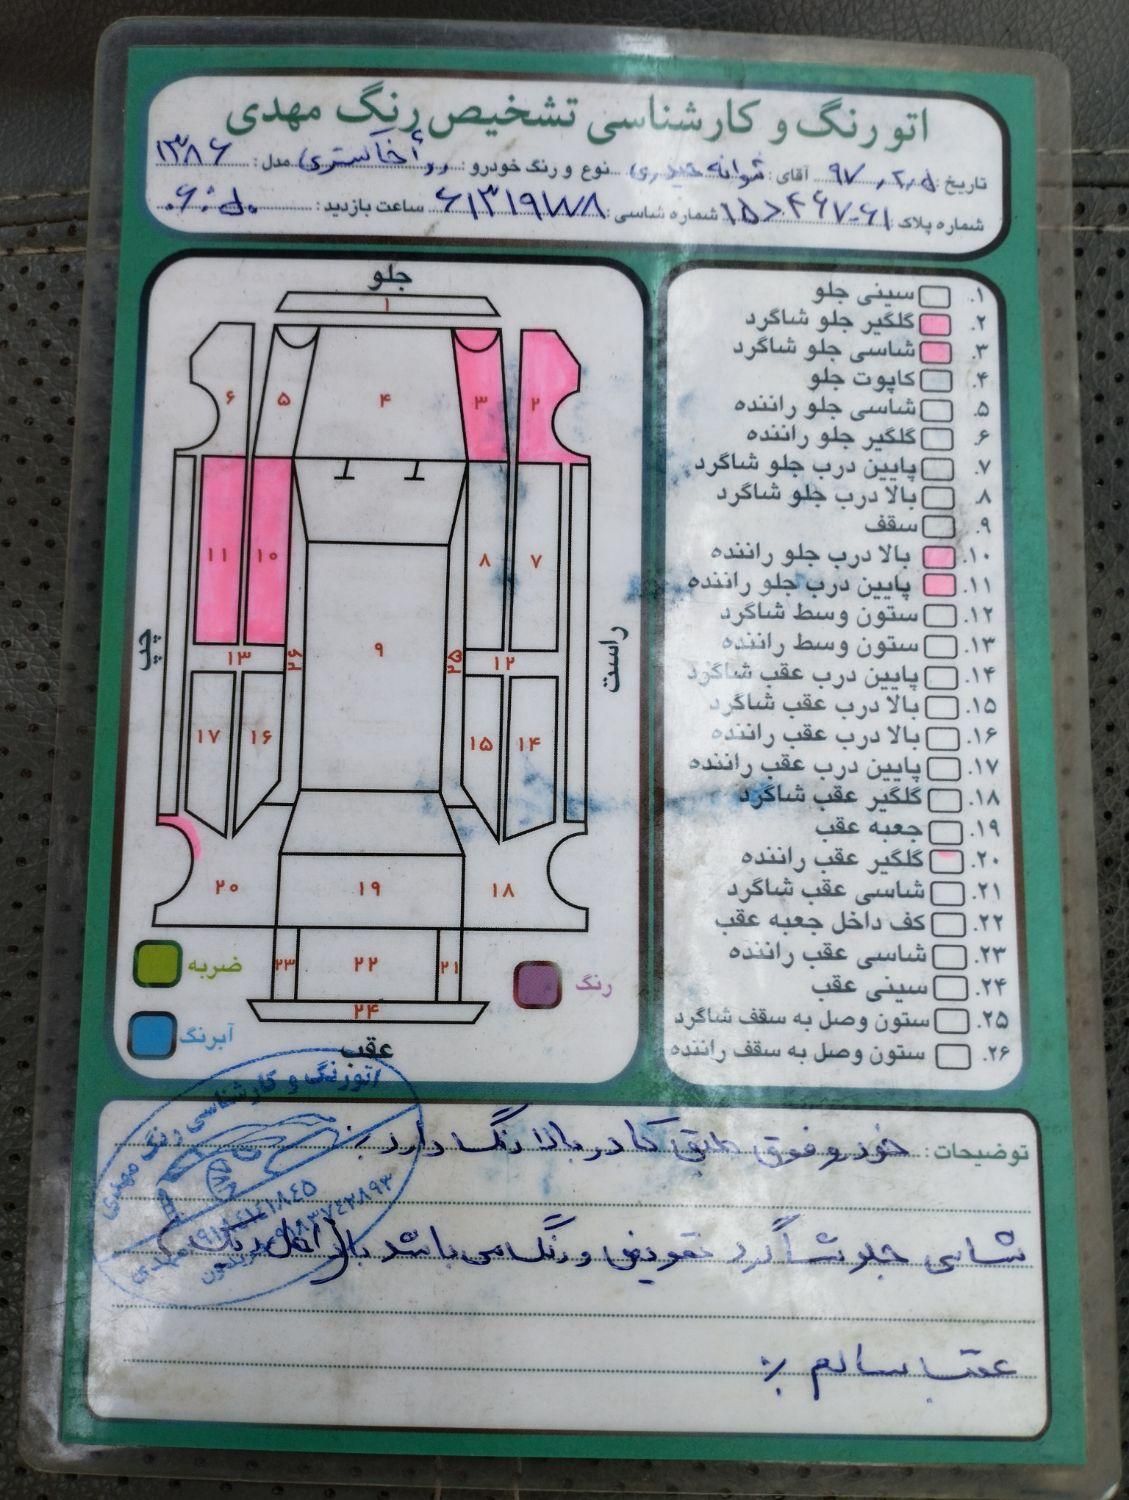 اتو رنگ و کارشناسی تشخیص رنگ مهدی
تاریخ: ۹۷،۲،۵ آقای: حیدری نوع و رنگ خودرو: خاکستری مدل: ۱۳۸۶
شماره پلاک شماره شاسی: ساعت بازدید:
جلو
۱
۶ ۵ ۴ ۳ ۲
۱۱ ۱۰ ۸ ۷
چپ ۱۳ ۲۶ ۹ ۲۵ ۱۲ راست
۱۷ ۱۶ ۱۵ ۱۴
۲۰ ۱۹ ۱۸
۲۳ ۲۲ ۲۱
۲۴
عقب
ضربه
رنگ
آبرنگ
۱. سینی جلو
۲. گلگیر جلو شاگرد
۳. شاسی جلو شاگرد
۴. کاپوت جلو
۵. شاسی جلو راننده
۶. گلگیر جلو راننده
۷. پایین درب جلو شاگرد
۸. بالا درب جلو شاگرد
۹. سقف
۱۰. بالا درب جلو راننده
۱۱. پایین درب جلو راننده
۱۲. ستون وسط شاگرد
۱۳. ستون وسط راننده
۱۴. پایین درب عقب شاگرد
۱۵. بالا درب عقب شاگرد
۱۶. بالا درب عقب راننده
۱۷. پایین درب عقب راننده
۱۸. گلگیر عقب شاگرد
۱۹. جعبه عقب
۲۰. گلگیر عقب راننده
۲۱. شاسی عقب شاگرد
۲۲. کف داخل جعبه عقب
۲۳. شاسی عقب راننده
۲۴. سینی عقب
۲۵. ستون وصل به سقف شاگرد
۲۶. ستون وصل به سقف راننده
توضیحات: خودرو فوق طبق کادر بالا رنگ دارد
شاسی جلو شاگرد تعویض و رنگ می باشد
عقب سالم
اتورنگ و کارشناسی رنگ مهدی